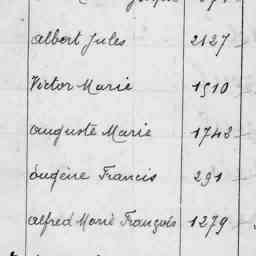 albert Jules 2127
Victor Marie 1510
auguste Marie 1748
Eugène Francis 291
alfred Marie François 1279